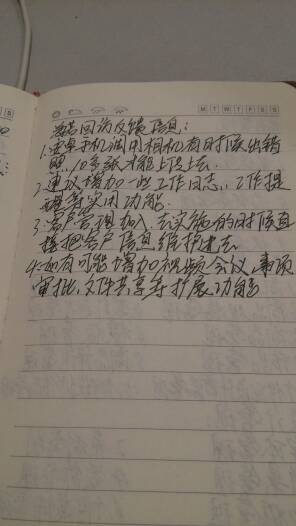 M T W T F S S
回访反馈信息:
1.安卓手机调用相机有时候出错
照10多张才能上传上去.
2.建议增加一些工作日志,工作提
醒等实用功能.
3.客户管理加入,去实施的时候直
接把客户信息维护进去
4.如有可能增加视频会议,事项
审批,文件共享等扩展功能